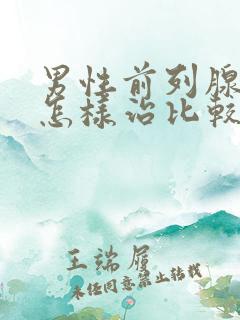 男性前列腺
怎样治比较
王端履
未经同意禁止转载